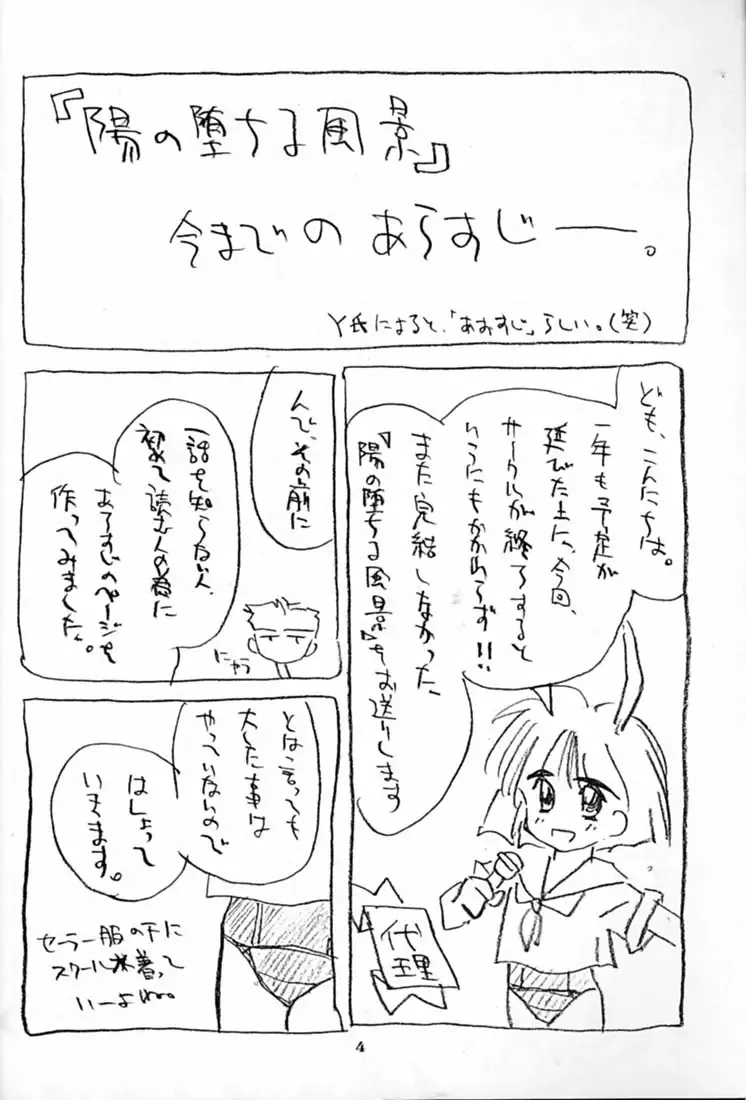 『陽の堕ちる風景』
今までのあらすじー。
Y氏によると、「あおすじ」らしい。(笑)
ども、こんにちは。
一年も予定が
延びた上に、今回、
サークルが終了すると
いうにもかかわらず!!
また完結しなかった、
『陽の堕ちる風景』をお送りします
代理
んで、その前に
一話を知らない人、
初めて読む人の為に
あらすじのページを
作ってみました。
にゃう
とは言っても
大した事は
やっていないので
はしょって
いきます。
セーラー服の下に
スクール水着って
いーよね。
4